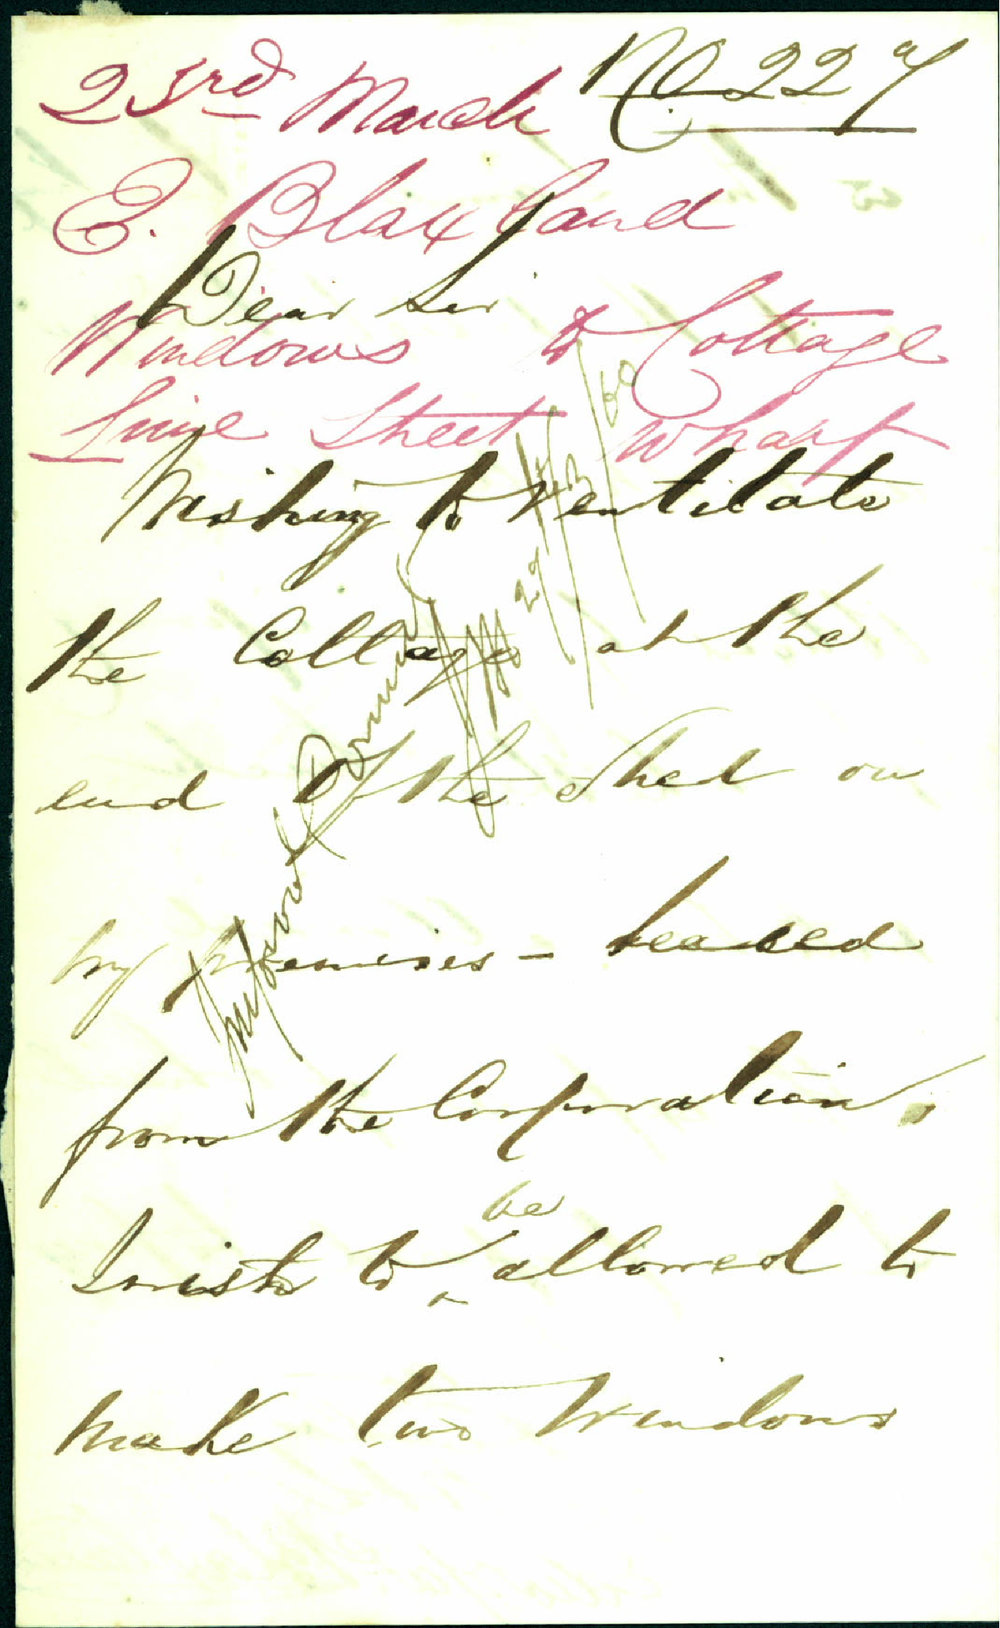 23rd March No 227
E. Blaxland
Dear Sir
Windows to Cottage
Lime Street Wharf
Wishing to ventilate
the Cottage at the
end of the Shed on
my premises - leased
from the Corporation,
I wish to be allowed to
make two Windows
27/3/60